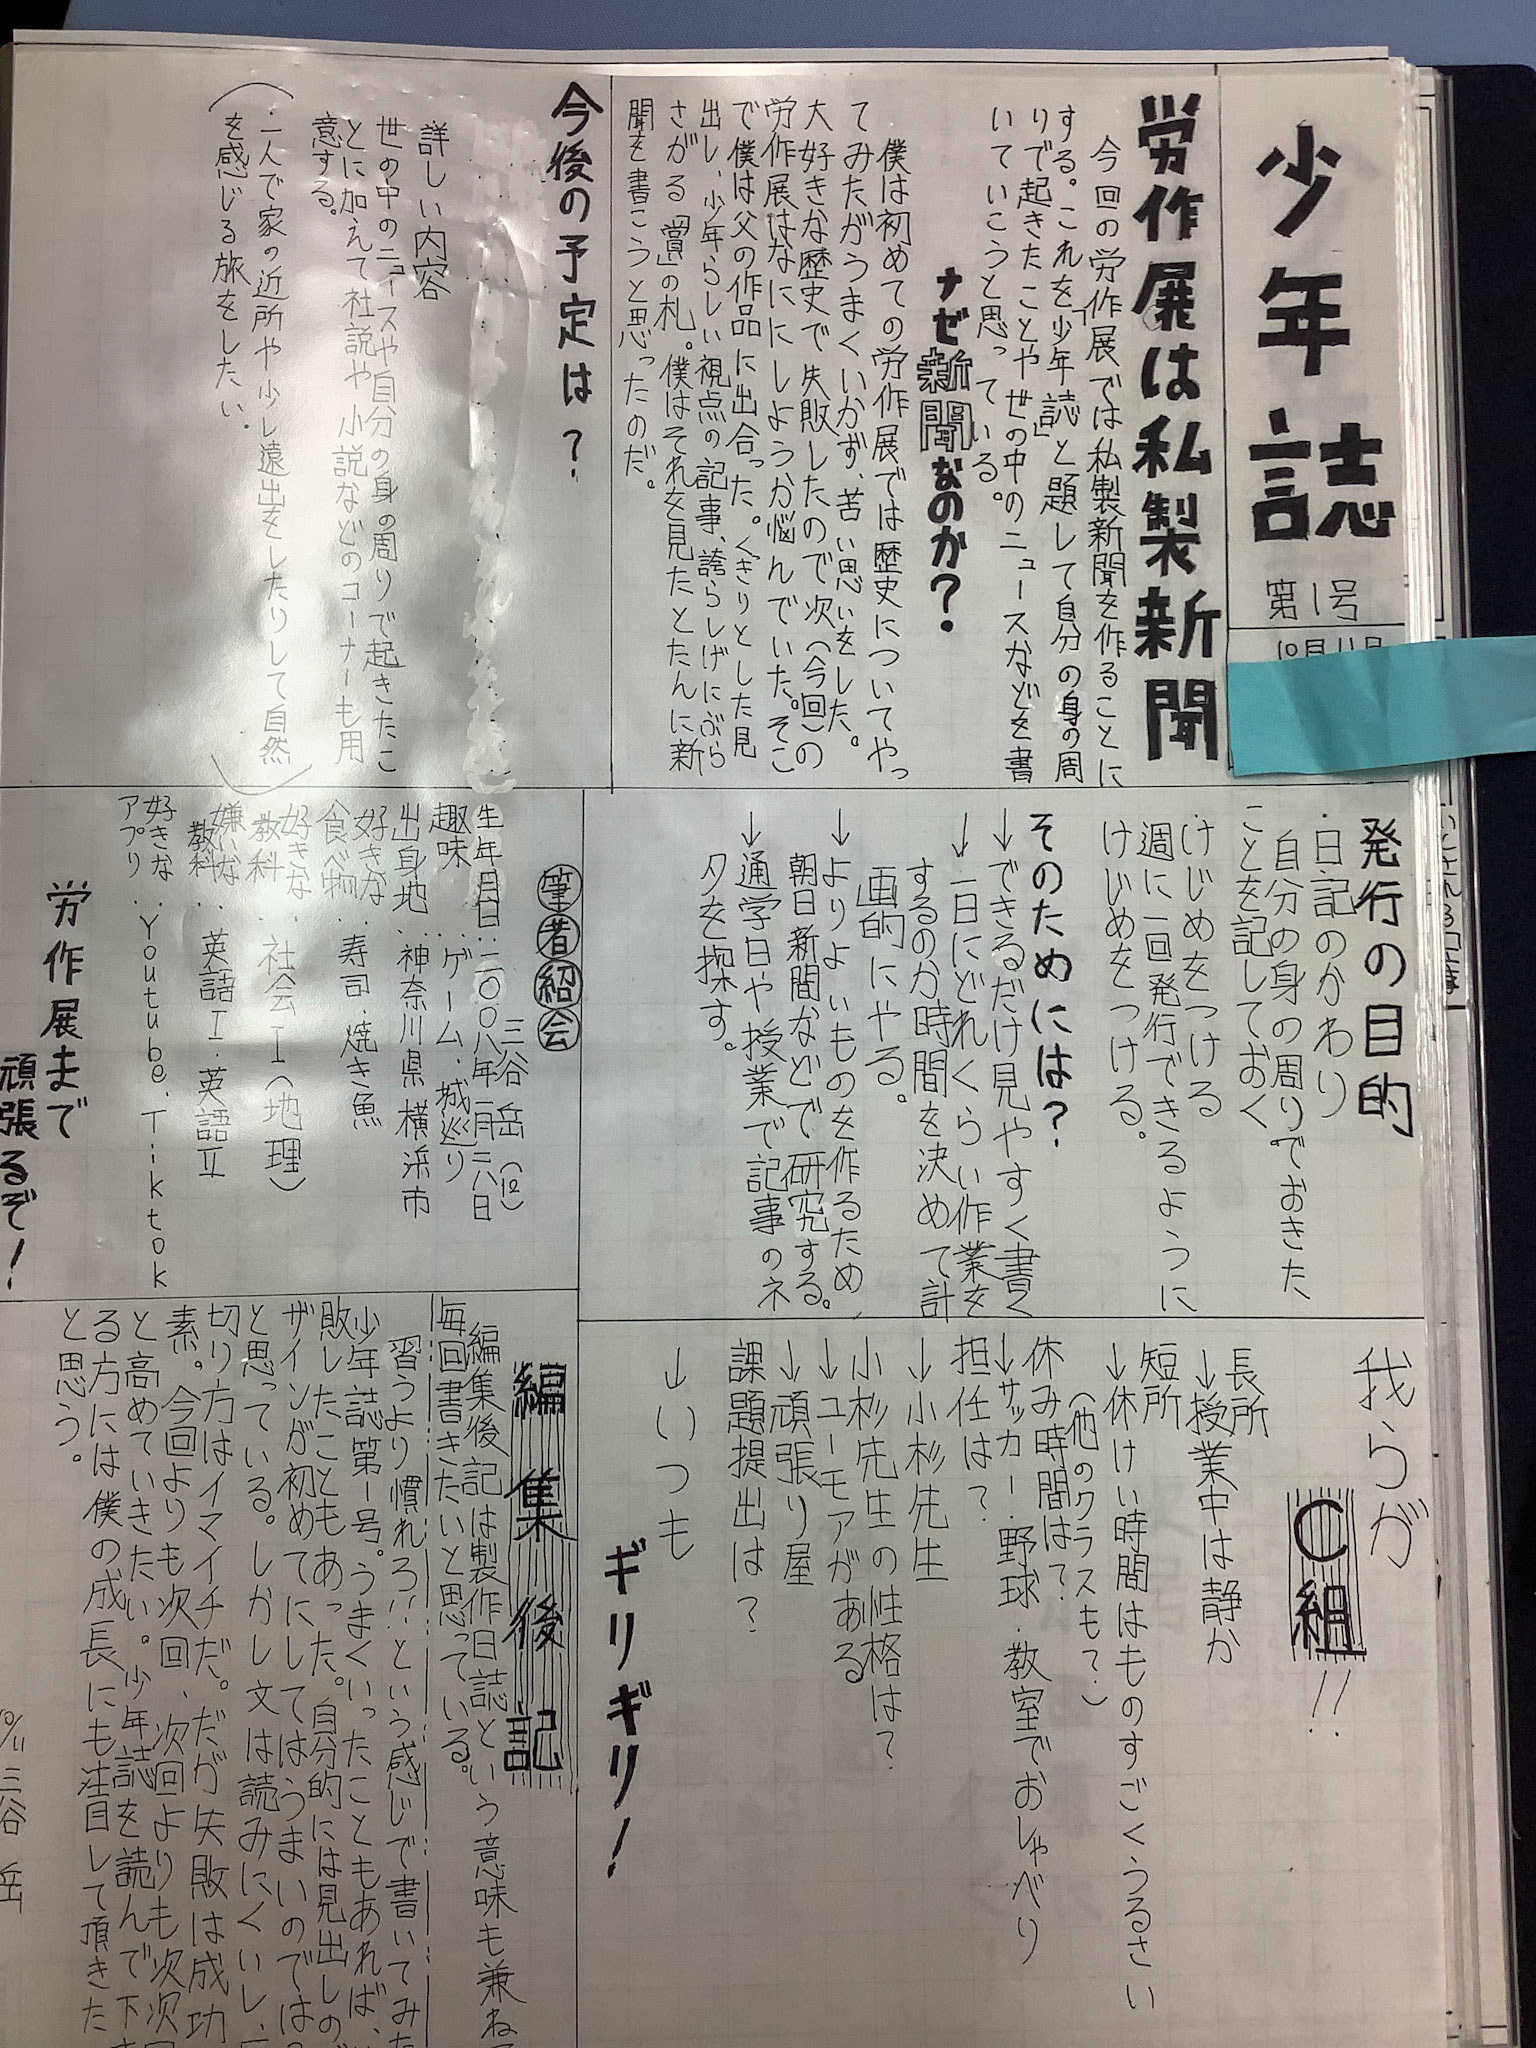 少年誌
第1号
10月11日
労作展は私製新聞
今回の労作展では私製新聞を作ることに
する。これを「少年誌」と題して自分の身の周
りで起きたことや世の中のニュースなどを書
いていこうと思っている。
ナゼ新聞なのか?
僕は初めての労作展では歴史についてやっ
てみたがうまくいかず、苦い思いをした。
大好きな歴史で失敗したので次(今回)の
労作展はなににしようか悩んでいた。そこ
で僕は父の作品に出合った。くぎりとした見
出し、少年らしい視点の記事、誇らしげにぶら
さがる「賞」の札。僕はそれを見たとたんに新
聞を書こうと思ったのだ。
今後の予定は?
詳しい内容
世の中のニュースや自分の身の周りで起きたこ
とに加えて社説や小説などのコーナーも用
意する。
(・一人で家の近所や少し遠出をしたりして自然
を感じる旅をしたい。)
発行の目的
・日記のかわり
自分の身の周りでおきた
ことを記しておく。
・けじめをつける
週に一回発行できるように
けじめをつける。
そのためには?
→できるだけ見やすく書く
→一日にどれくらい作業を
するのか時間を決めて計
画的にやる。
→よりよいものを作るため
朝日新聞などで研究する。
→通学日や授業で記事のネ
タを探す。
筆者紹会
三谷 岳(12)
生年月日:二〇〇八年一月二八日
趣味:ゲーム、城巡り
出身地:神奈川県横浜市
好きな食べ物:寿司・焼き魚
好きな教科:社会I(地理)
嫌いな教科:英語I・英語II
好きなアプリ:Youtube、Tiktok
労作展まで
頑張るぞ!
我らが
C組!!
長所
→授業中は静か
短所
→休けい時間はものすごくうるさい
(他のクラスも?)
休み時間は?
→サッカー・野球・教室でおしゃべり
担任は?
→小杉先生
小杉先生の性格は?
→ユーモアがある
→頑張り屋
課題提出は?
→いつも
ギリギリ!
編集後記
編集後記は製作日誌という意味も兼ね
毎回書きたいと思っている。
習うより慣れろ!!という感じで書いてみた
少年誌第一号。うまくいったこともあれば、
敗したこともあった。自分的には見出しの
ザインが初めてにしてはうまいのでは?
と思っている。しかし文は読みにくいし、
切り方はイマイチだ。だが失敗は成功
素。今回よりも次回、次回よりも次次
と高めていきたい。少年誌を読んで下
る方には僕の成長にも注目して頂きた
と思う。
10/11 三谷 岳